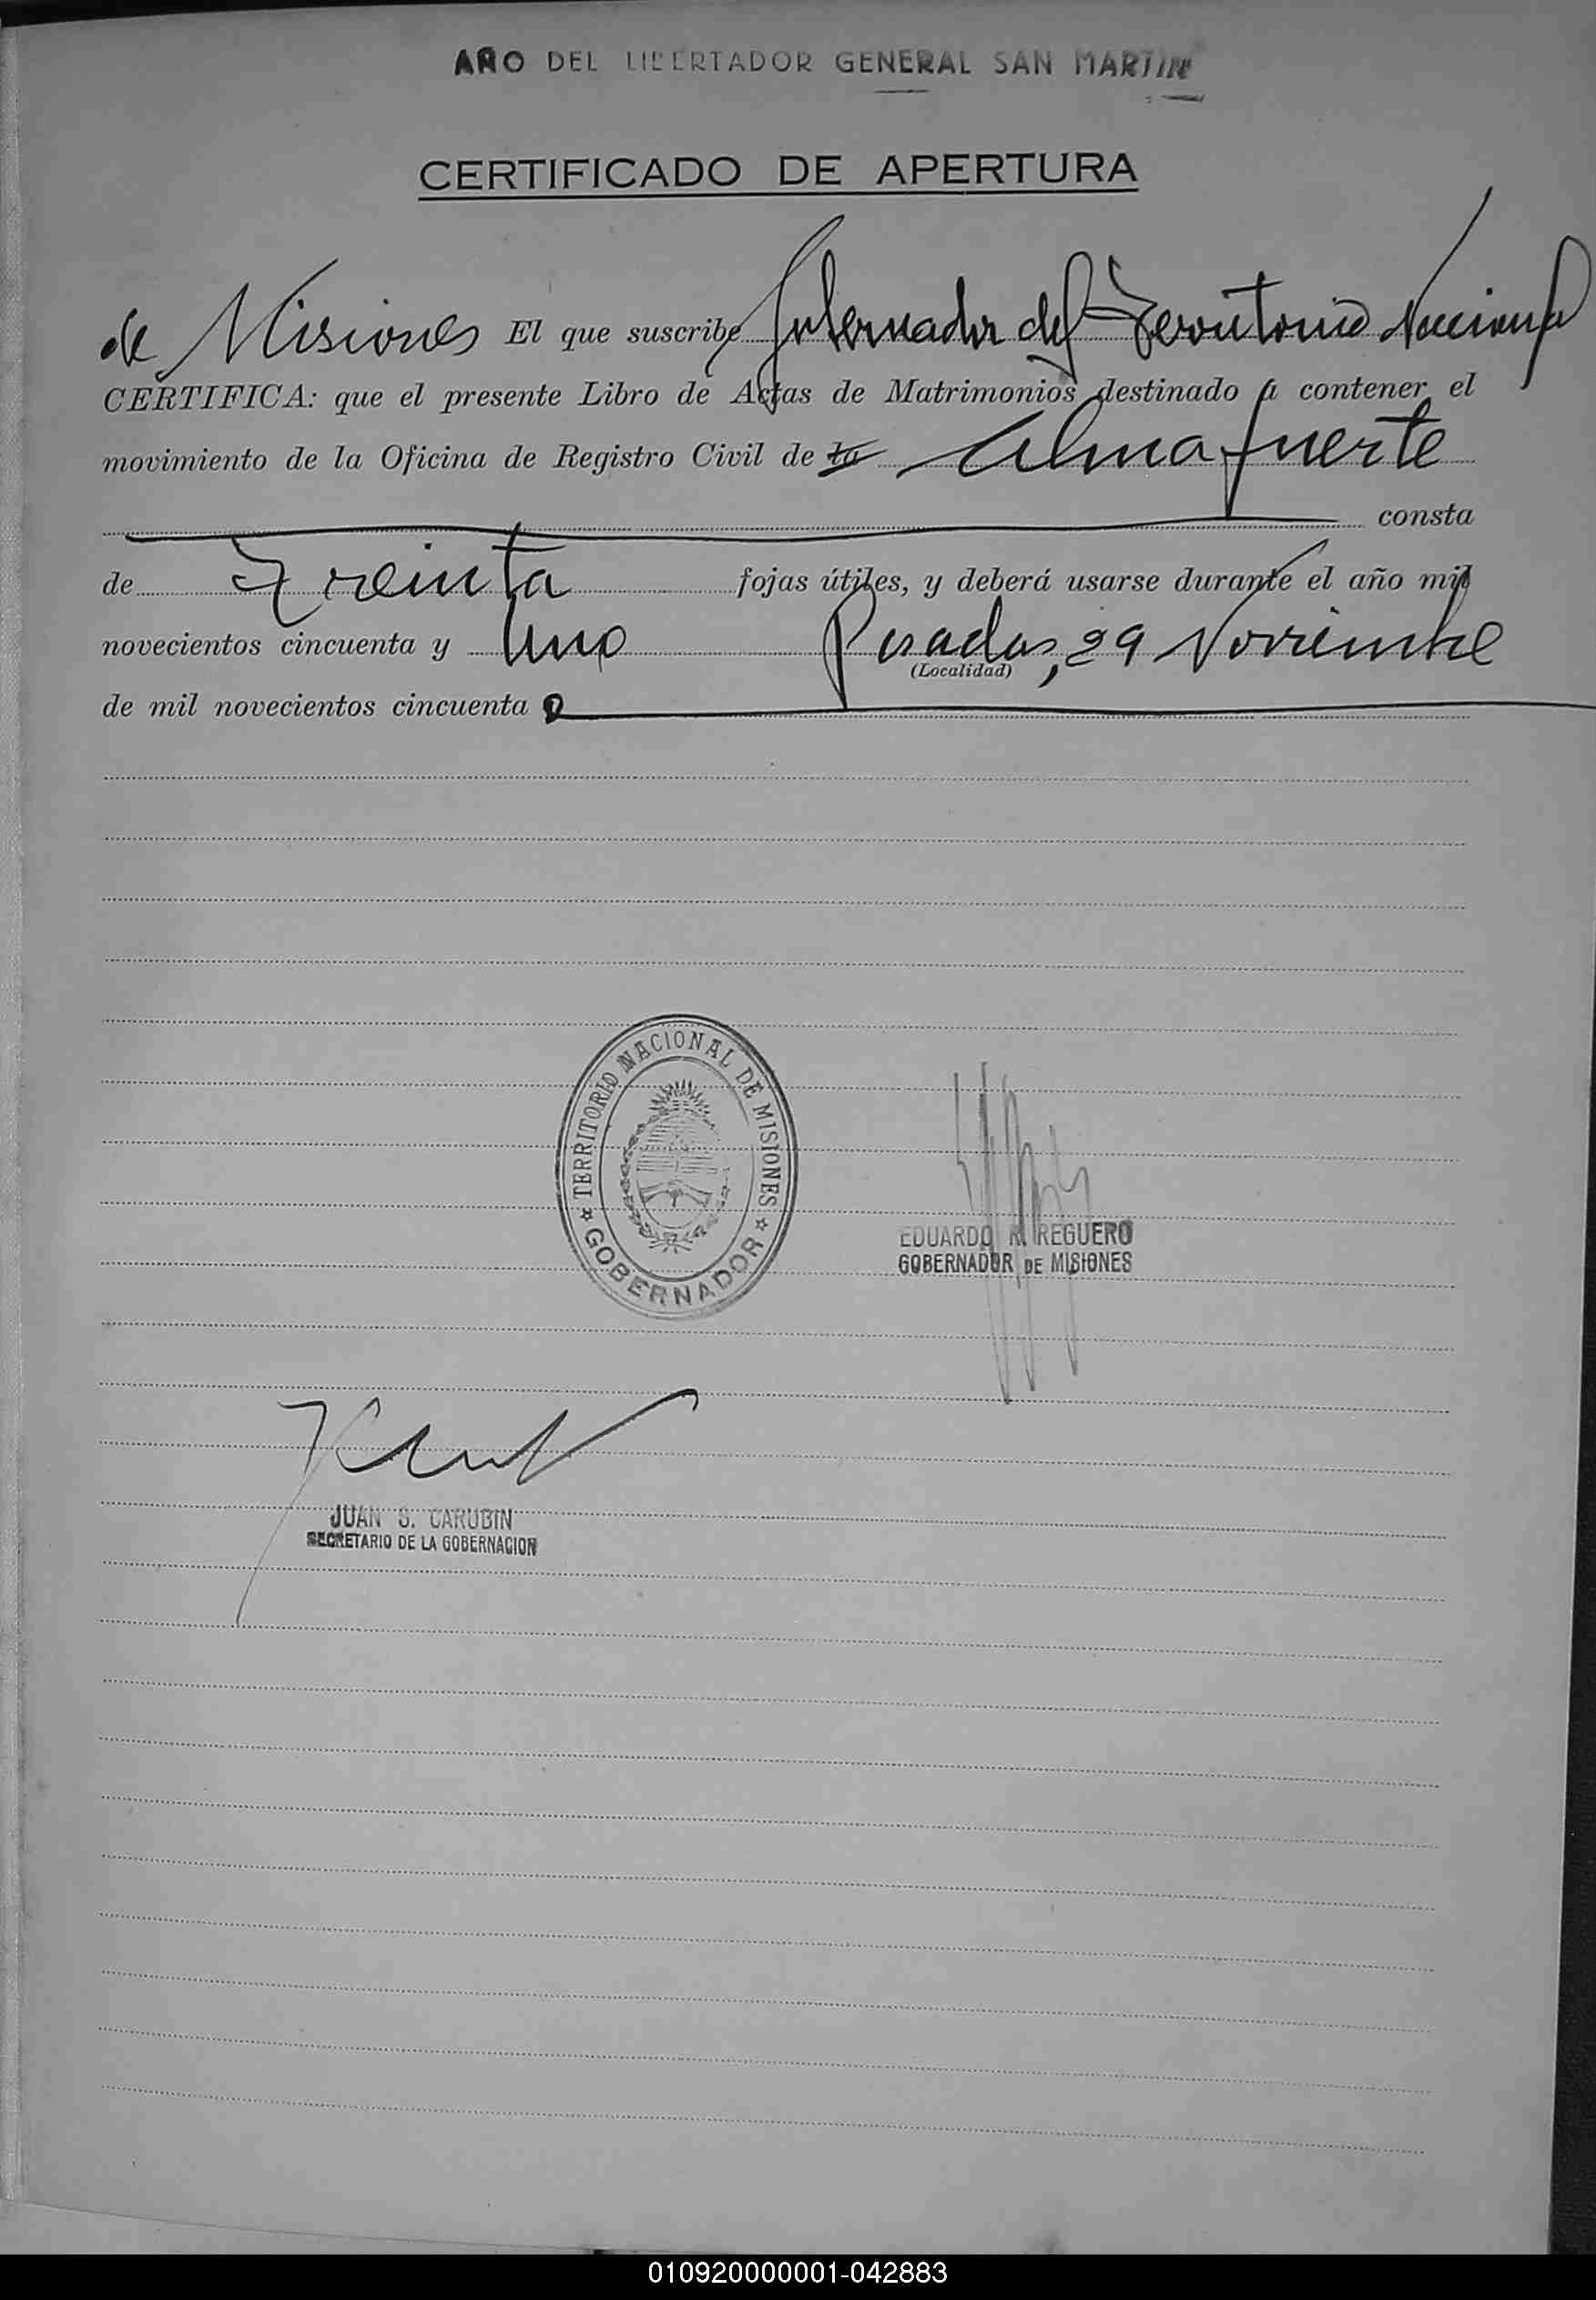 AÑO DEL LIBERTADOR GENERAL SAN MARTIN
CERTIFICADO DE APERTURA
El que suscribe Gobernador del Territorio Nacional
de Misiones
CERTIFICA: que el presente Libro de Actas de Matrimonios destinado a contener el
movimiento de la Oficina de Registro Civil de la Almafuerte
consta
de Treinta fojas útiles, y deberá usarse durante el año mil
novecientos cincuenta y Uno Posadas, 29 Noviembre
(Localidad)
de mil novecientos cincuenta
TERRITORIO NACIONAL DE MISIONES
GOBERNADOR
EDUARDO REGUERO
GOBERNADOR DE MISIONES
JUAN S. CARUBIN
SECRETARIO DE LA GOBERNACION
010920000001-042883